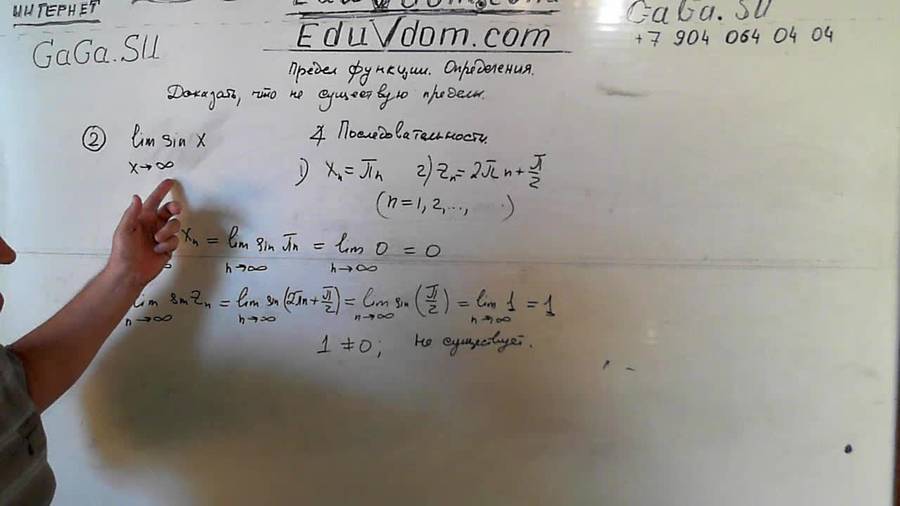 ИНТЕРНЕТ
EduVdom.com
GaGa.SU
+7 904 064 04 04
GaGa.SU
Предел функции. Определения.
Доказать, что не существую пределы.
② lim sin x
x→∞
Последовательности.
1) xₙ = πn 2) zₙ = 2πn + π/2
(n = 1, 2, ..., )
xₙ = lim sin πn = lim 0 = 0
n→∞ n→∞
lim sin zₙ = lim sin (2πn + π/2) = lim sin (π/2) = lim 1 = 1
n→∞ n→∞ n→∞ n→∞
1 ≠ 0; не существует.